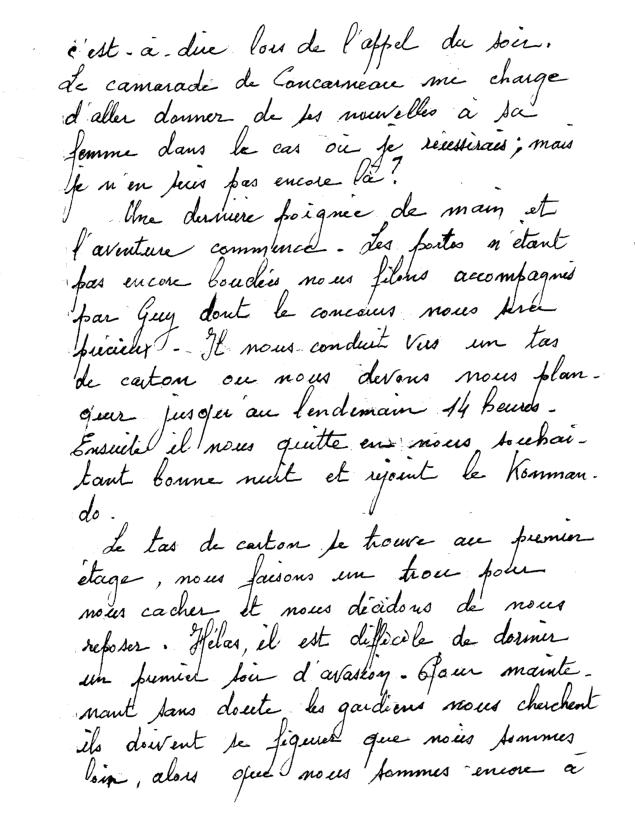 c'est-à-dire lors de l'appel du soir.
Le camarade de Concarneau me charge
d'aller donner de ses nouvelles à sa
femme dans le cas où je réussirais ; mais
je n'en suis pas encore là ?
Une dernière poignée de main et
l'aventure commence - Les portes n'étant
pas encore bouclées nous filons accompagnés
par Guy dont le concours nous sera
précieux - Il nous conduit vers un tas
de carton ou nous devons nous plan-
quer jusqu'au lendemain 14 heures -
Ensuite il nous quitte en nous souhai-
tant bonne nuit et rejoint le Komman-
do.
Le tas de carton se trouve au premier
étage, nous faisons un trou pour
nous cacher et nous décidons de nous
reposer. Hélas, il est difficile de dormir
un premier soir d'avasion - Pour mainte-
nant sans doute les gardiens nous cherchent
ils doivent se figurer que nous sommes
loin, alors que nous sommes encore à